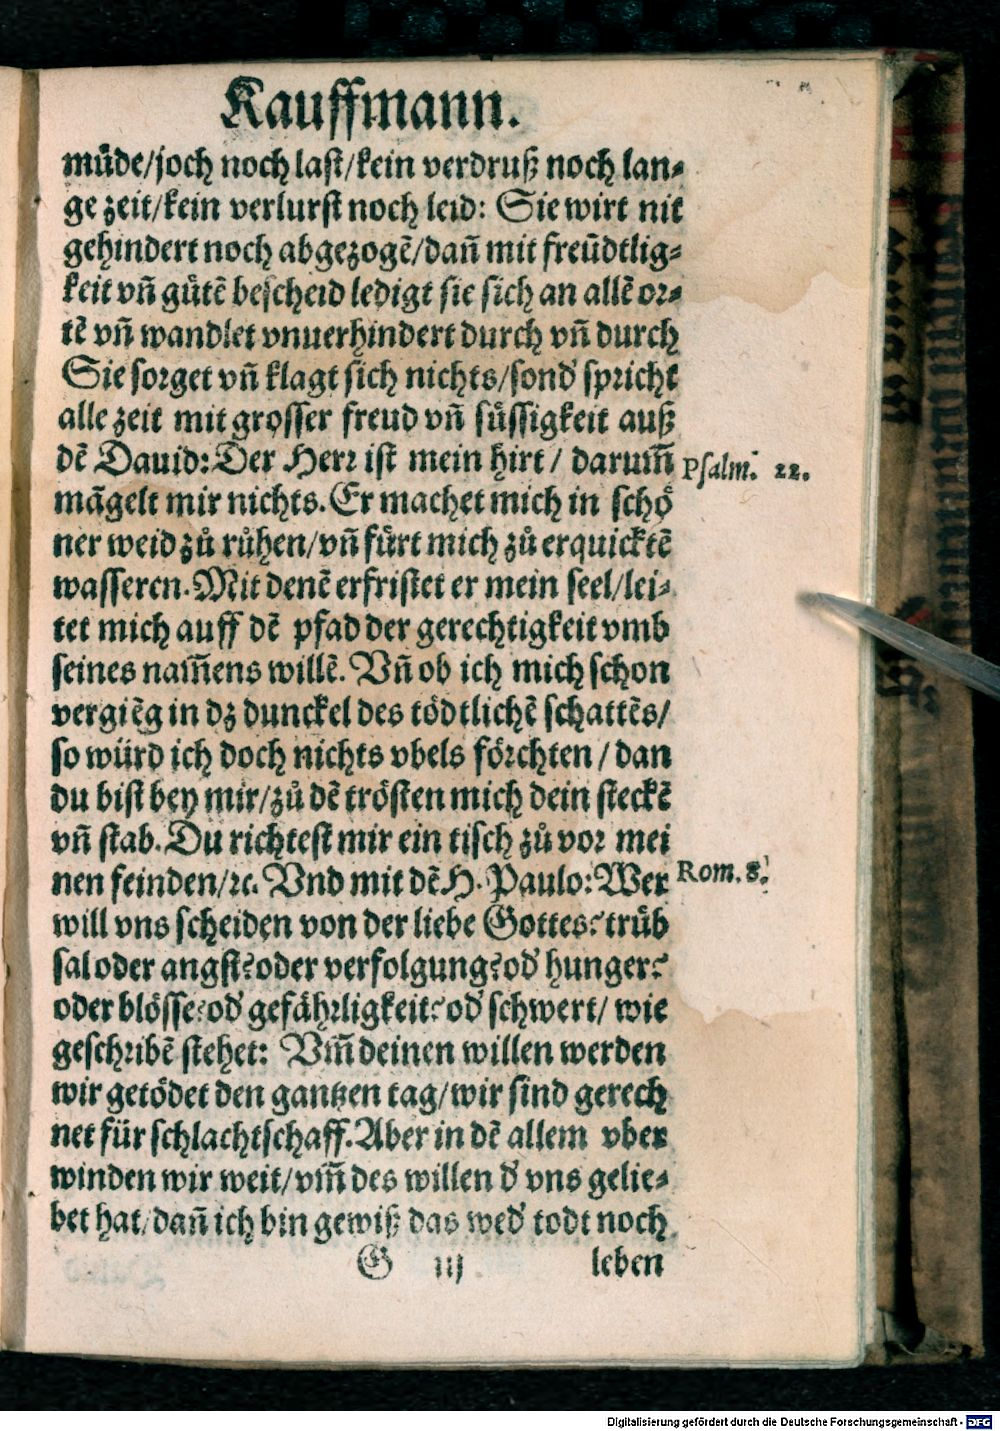 Kauffmann.
müde/joch noch last/kein verdruß noch lan⸗
ge zeit/kein verlurst noch leid: Sie wirt nit
gehindert noch abgezogẽ/dañ mit freüdtlig⸗
keit vñ gütẽ bescheid ledigt sie sich an allẽ or⸗
tẽ vñ wandlet vnuerhindert durch vñ durch
Sie sorget vñ klagt sich nichts/sond' spricht
alle zeit mit grosser freud vñ süssigkeit auß
dẽ Dauid: Der Herr ist mein hirt/ darum̃ Psalm. 22.
mãgelt mir nichts. Er machet mich in schö
ner weid zů růhen/vñ fürt mich zů erquicktẽ
wasseren. Mit denẽ erfristet er mein seel/lei⸗
tet mich auff dẽ pfad der gerechtigkeit vmb
seines nam̃ens willẽ. Vñ ob ich mich schon
vergiẽg in dz dunckel des tödtlichẽ schattẽs/
so würd ich doch nichts vbels förchten/ dan
du bist bey mir/zů dẽ trösten mich dein steckẽ
vñ stab. Du richtest mir ein tisch zů vor mei
nen feinden/ꝛc. Vnd mit dẽ H. Paulo: Wer Rom. 8.
will vns scheiden von der liebe Gottes? trüb
sal oder angst? oder verfolgung? od' hunger?
oder blösse? od' gefährligkeit? od' schwert/ wie
geschribẽ stehet: Vm̃ deinen willen werden
wir getödet den gantzen tag/wir sind gerech
net für schlachtschaff. Aber in dẽ allem vber
winden wir weit/vm̃ des willen d' vns gelie⸗
bet hat/dañ ich bin gewiß das wed' todt noch
G iij leben
Digitalisierung gefördert durch die Deutsche Forschungsgemeinschaft - DFG